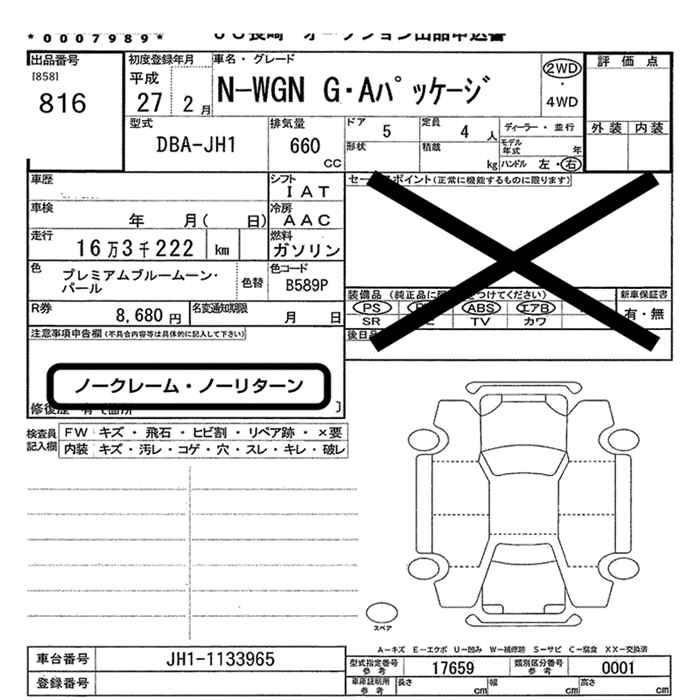 *0007989*
出品番号
[858]
816
初度登録年月
平成
27 2月
車名・グレード
N-WGN G・Aパッケージ
2WD
・
4WD
評価点
外装 内装
型式
DBA-JH1
排気量
660
CC
ドア
5
定員
4 人
ディーラー・並行
形状
積載
kg
モデル年式 年
ハンドル 左・右
車歴
シフト
IAT
車検
年 月( 日)
冷房
AAC
走行
16万3千222 km
燃料
ガソリン
色
プレミアムブルームーン・
パール
色替
色コード
B589P
R券
8,680 円
名変通知期限
月 日
ポイント(正常に機能するものに限ります)
装備品
つけてください)
新車保証書
有・無
PS
ABS
エアB
SR
TV
カワ
後日
注意事項申告欄(不具合内容等は具体的に記入して下さい)
ノークレーム・ノーリターン
検査員
記入欄
FW キズ・飛石・ヒビ割・リペア跡・×要
内装 キズ・汚レ・コゲ・穴・スレ・キレ・破レ
スペア
A-キズ E-エクボ U-凹み W-補修跡 S-サビ C-腐食 XX-交換済
車台番号
JH1-1133965
登録番号
型式指定番号
参考
17659
類別区分番号
参考
0001
車庫証明用
参考
長さ cm
幅 cm
高さ cm